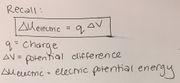 Recall:
ΔUelectric = q ΔV
q = charge
ΔV = potential difference
ΔUelectric = electric potential energy